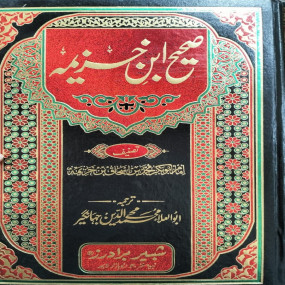 صحیح ابن خزیمہ
تصنیف
امام ابوبکر محمد بن اسحاق بن خزیمہ
ترجمہ
ابوالعلاء محمد محی الدین جہانگیر
شبیر برادرز